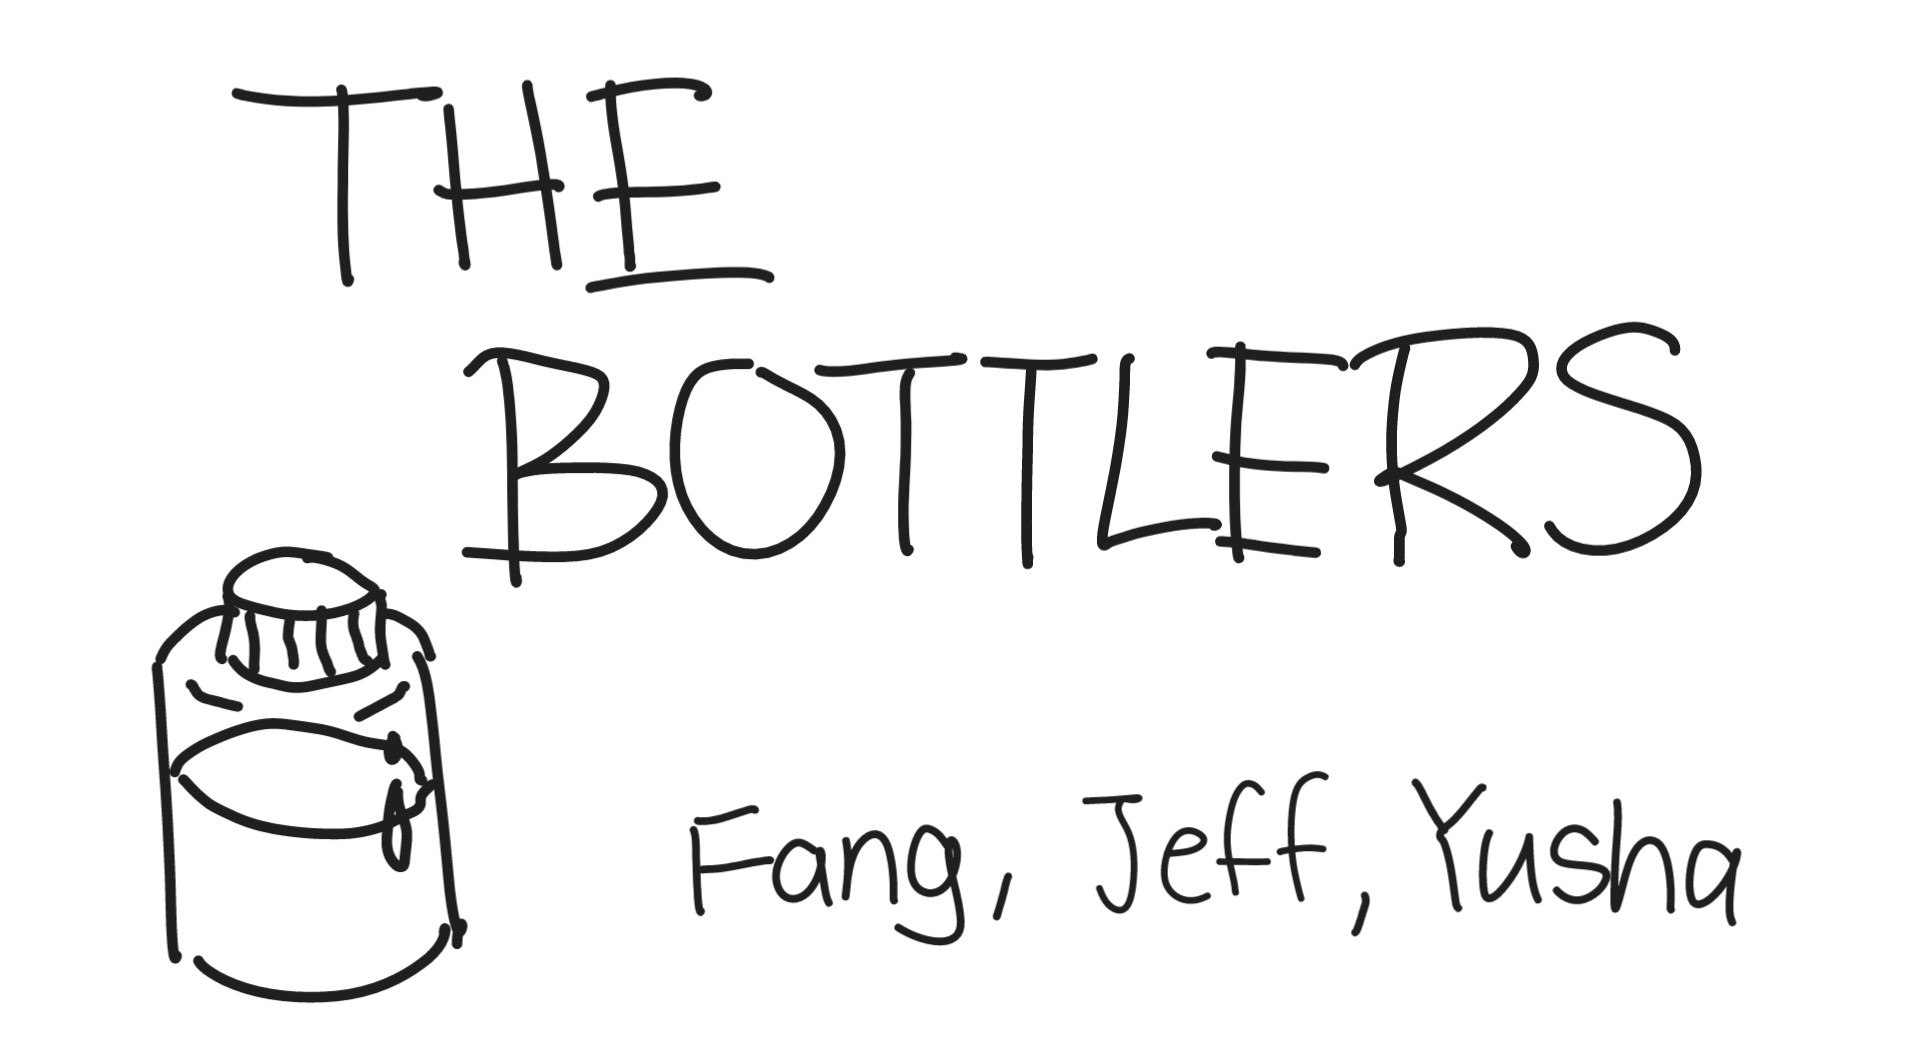 THE
BOTTLERS
Fang, Jeff, Yusha